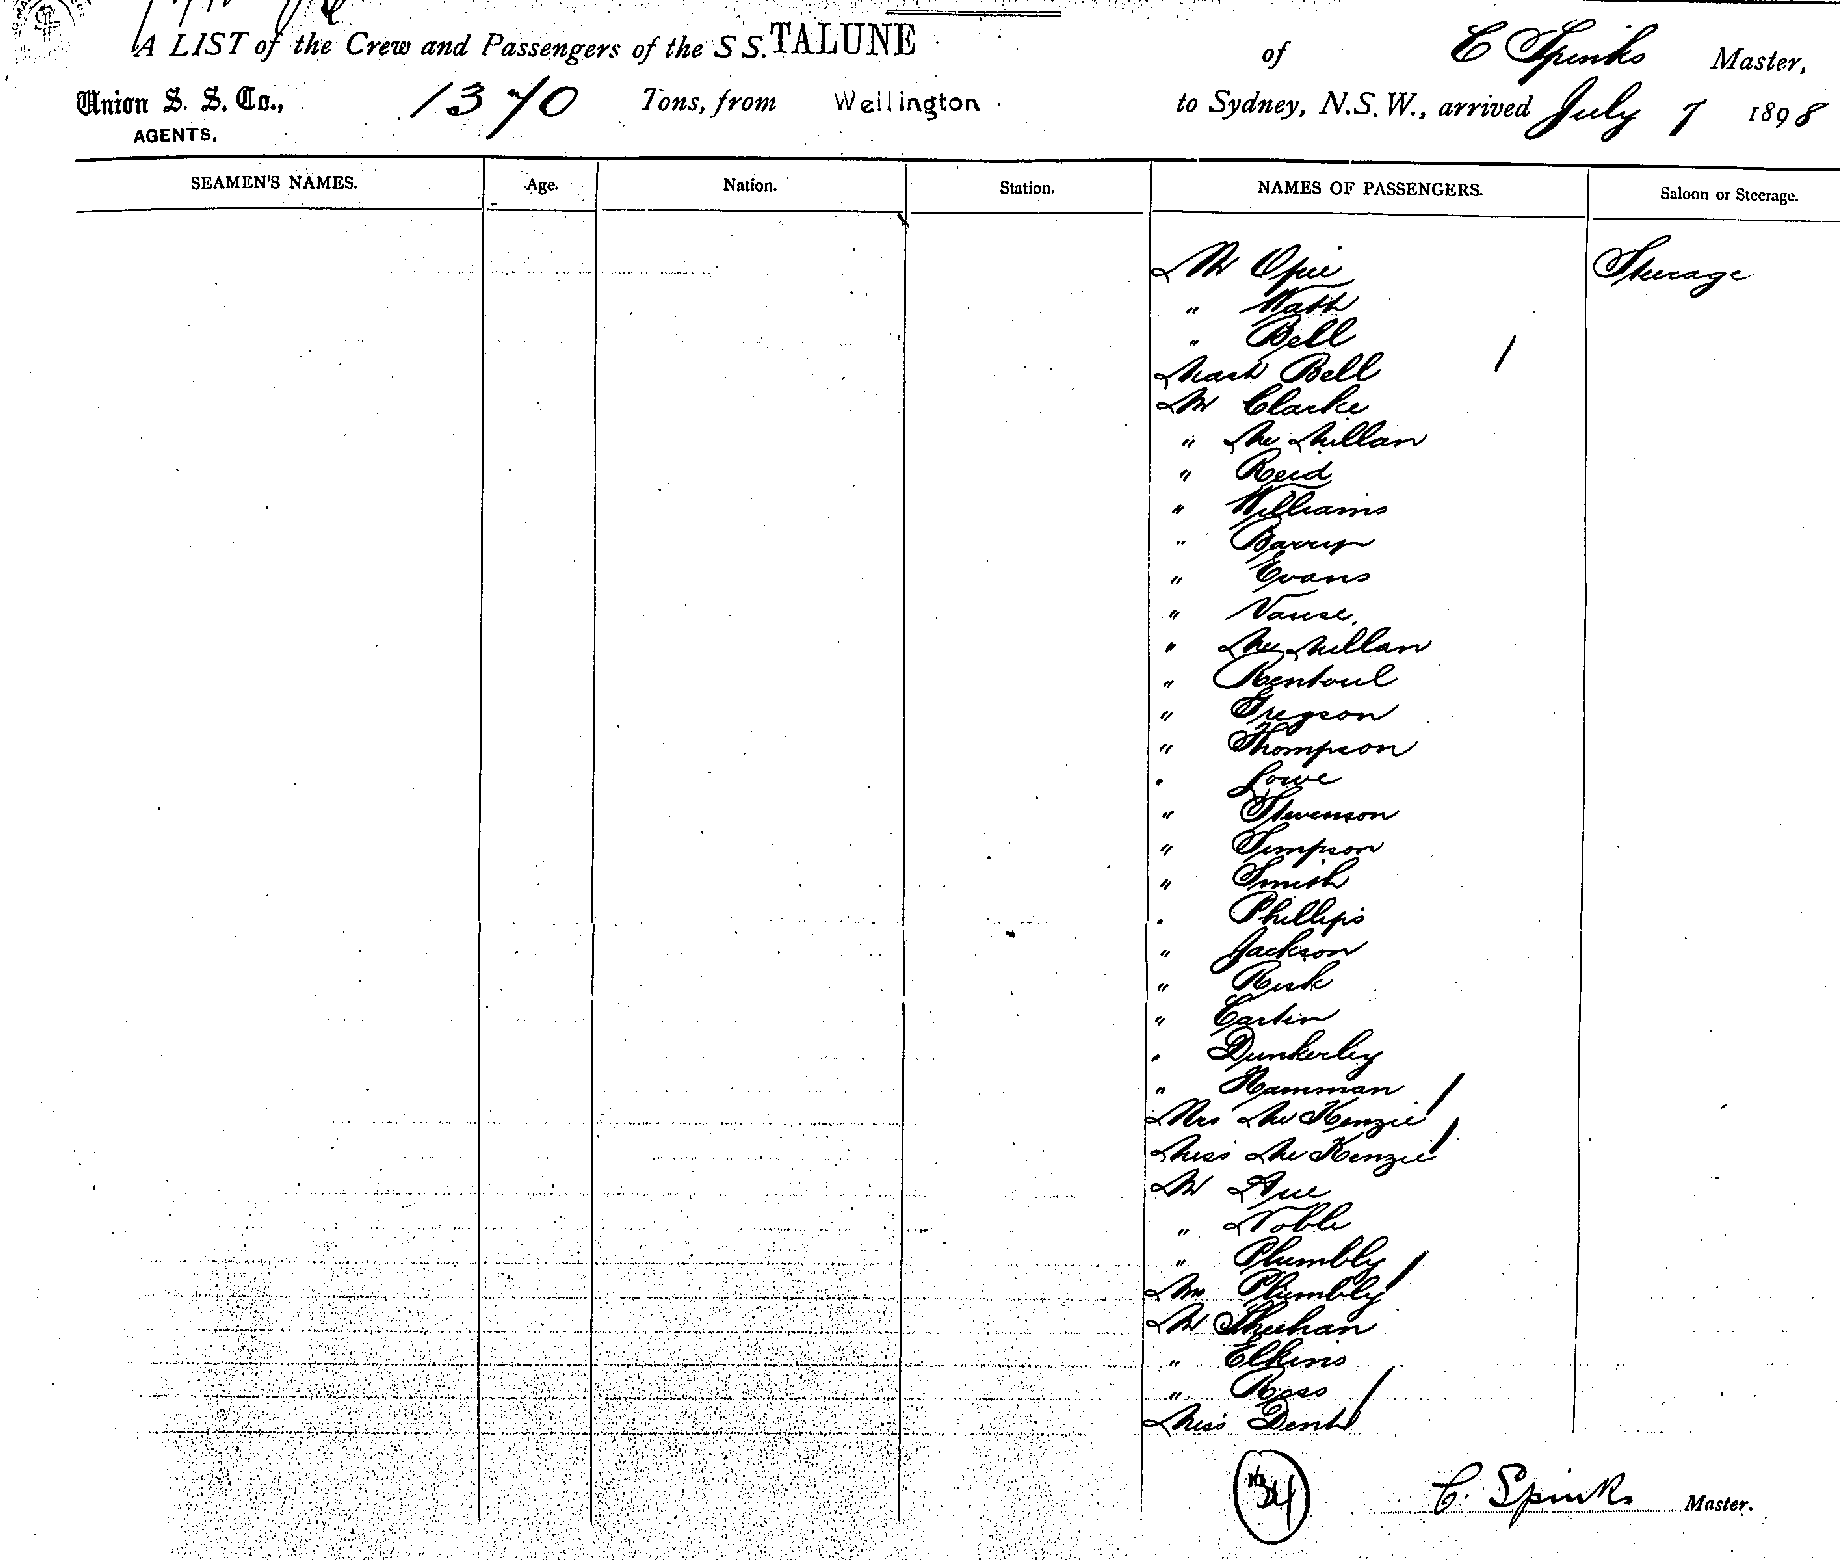 A LIST of the Crew and Passengers of the S S. TALUNE of C Spinks Master,
Union S. S. Co., 1370 Tons, from Wellington to Sydney, N.S.W., arrived July 7 1898
AGENTS.
SEAMEN'S NAMES. Age. Nation. Station. NAMES OF PASSENGERS. Saloon or Steerage.
Mr Opie Steerage
" Watt
" Bell
Mast Bell
Mr Clarke
" McMillan
" Reid
" Williams
" Barry
" Evans
" Vause
" McMillan
" Rentoul
" Gregson
" Thompson
" Lowe
" Stevenson
" Simpson
" Smith
" Phillips
" Jackson
" Rusk
" Carlin
" Dunkerley
" Hamman
Mrs McKenzie
Miss McKenzie
Mr
" Noble
" Plumbly
Mrs Plumbly
Mr Sheehan
" Elkins
" Ross
Miss Dent
34
C. Spinks Master.